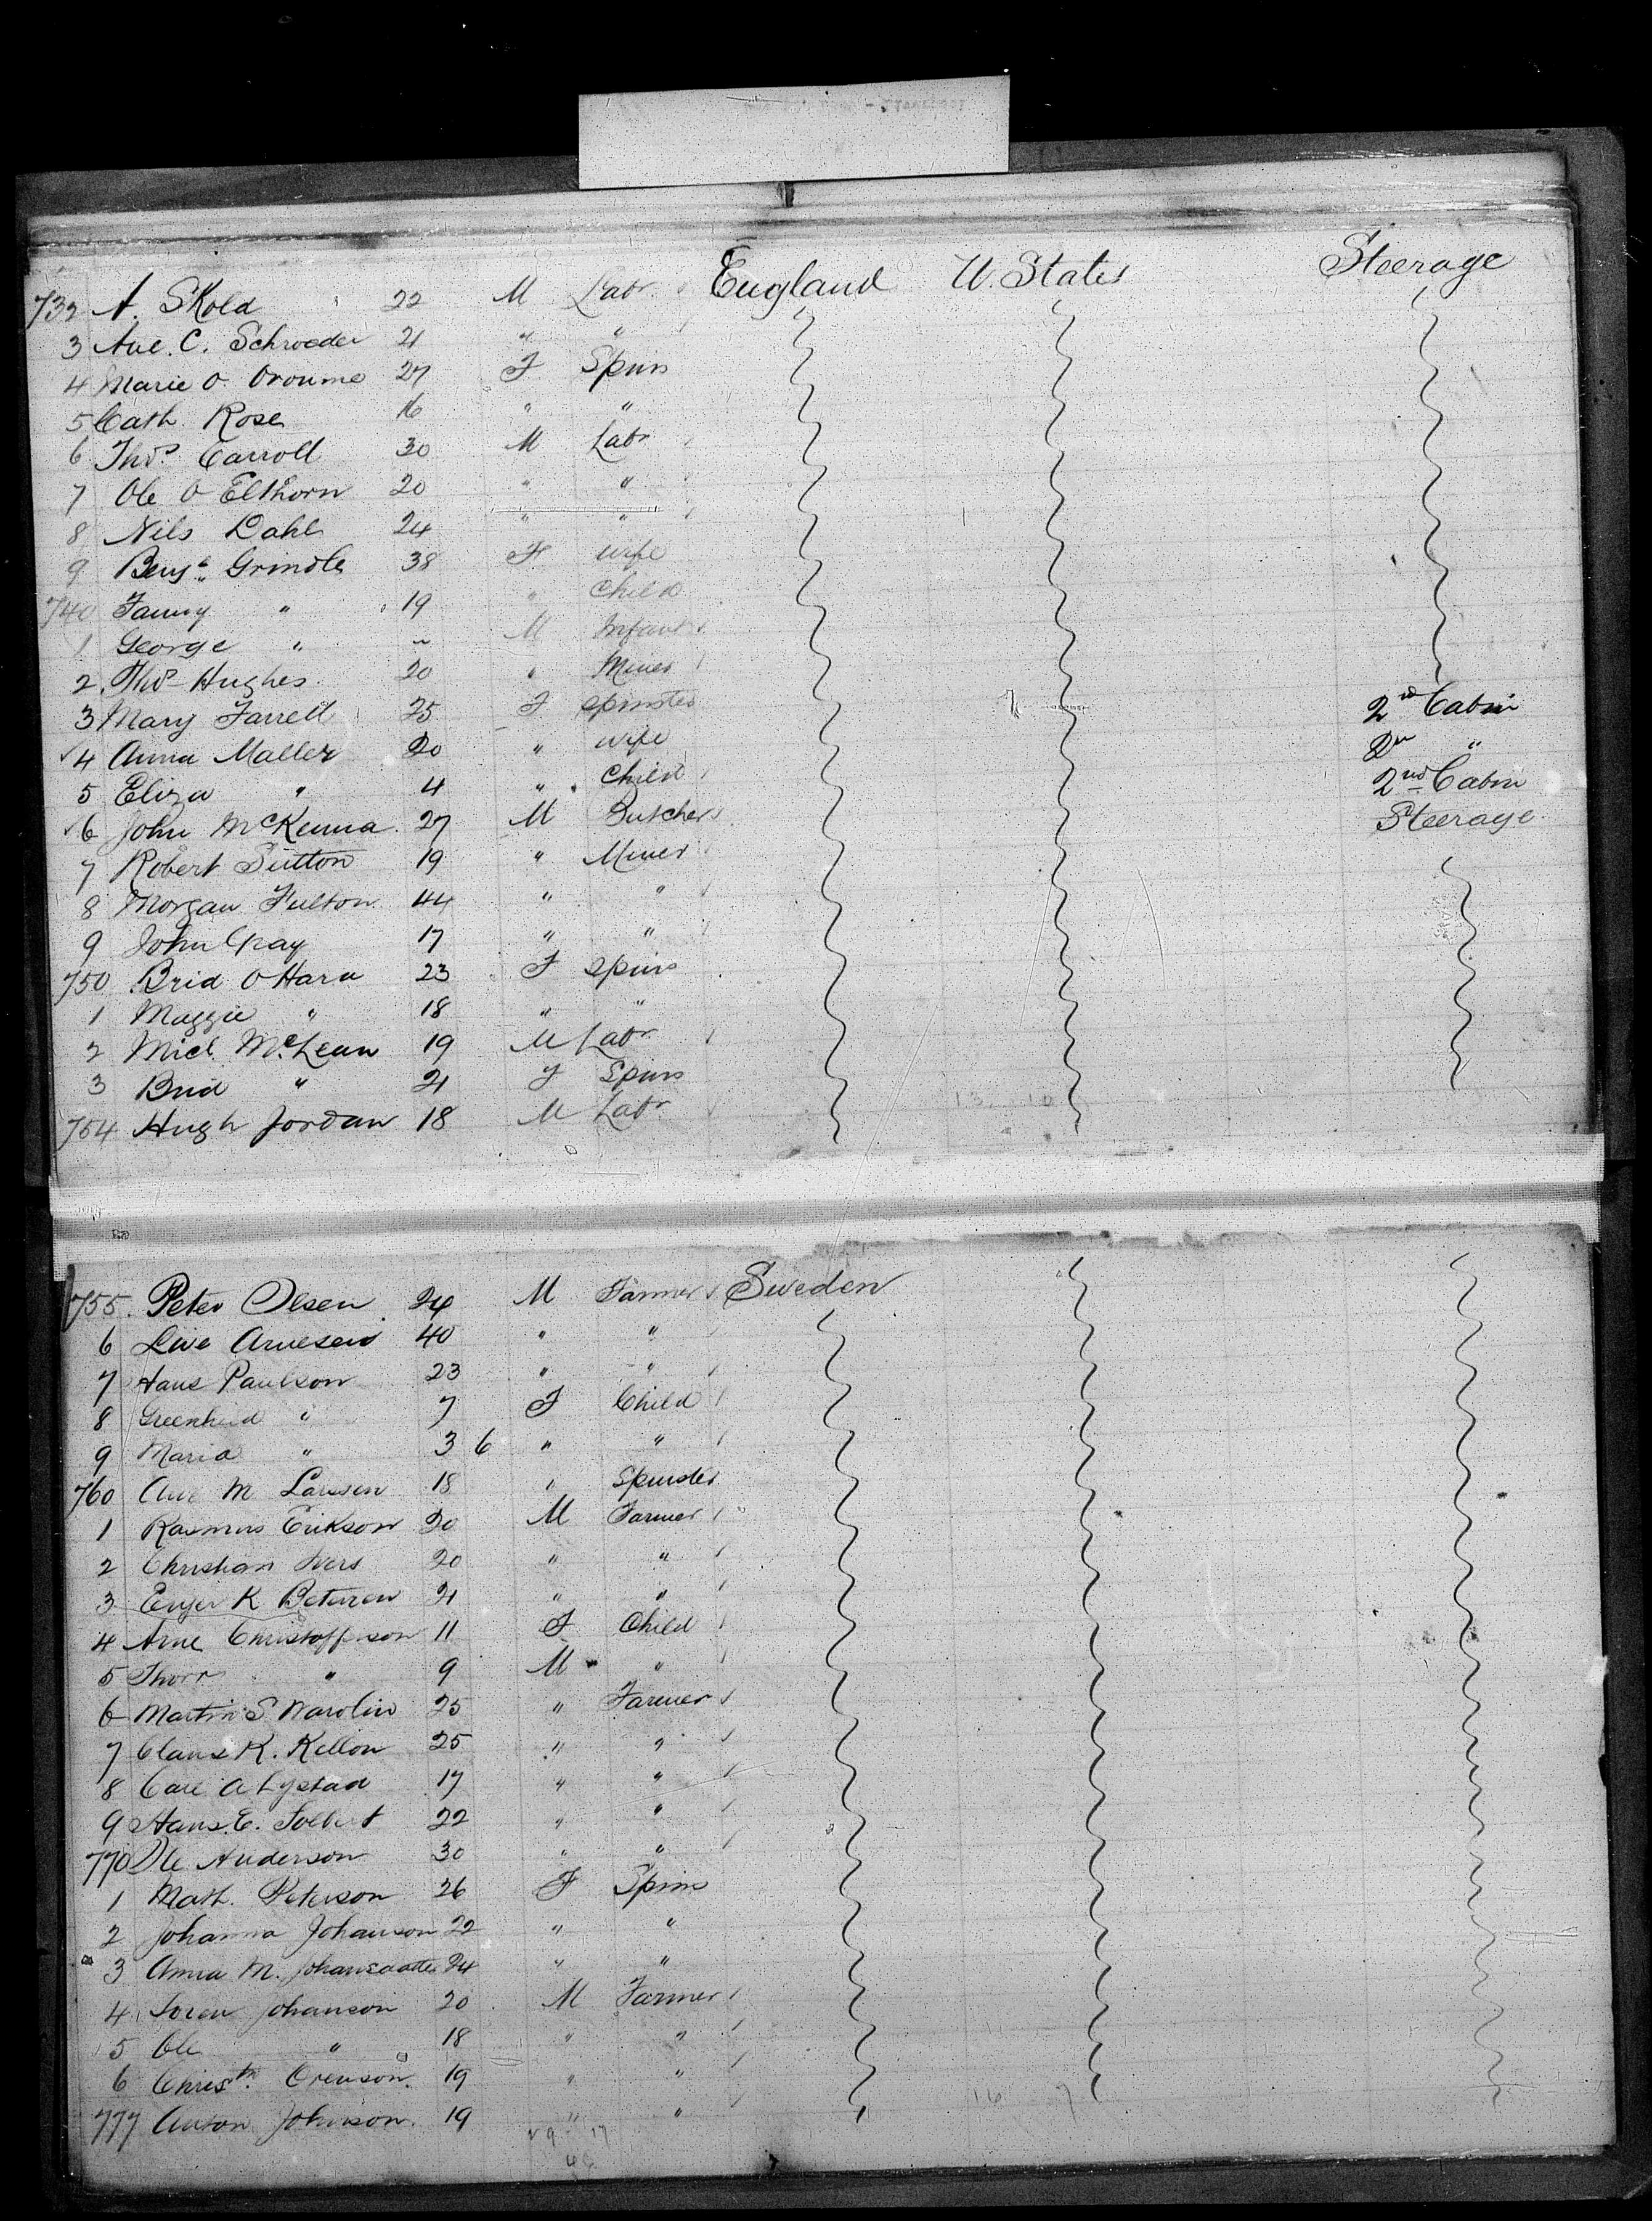 732 A. Skold 22 M Labr. England U. States Steerage
3 Aue. C. Schroeder 21 " "
4 Marie O. Oroume 27 F Spins
5 Cath. Rose 16 " "
6 Thos. Carroll 30 M Labr
7 Ole O Elthorn 20 " "
8 Nils Dahl 24 " "
9 Benj. Grindle 38 F wife
740 Fanny " 19 " Child
1 George " ~ M Infant
2. Thos Hughes. 20 " Miner
3 Mary Farrell 25 F spinster 2nd Cabin
4 Anna Maller 20 " wife 2n "
5 Eliza " 4 " Child 2nd Cabin
6 John McKenna. 27 M Butcher Steerage.
7 Robert Sutton 19 " Miner
8 Morgan Fulton 44 " "
9 John Gray 17 " "
750 Brid O Hara 23 F Spins
1 Maggie " 18 " "
2 Micl. McLean 19 M Labr
3 Brid " 21 F Spins
754 Hugh Jordan 18 M Labr.
755. Peter Olsen 24 M Farmer Sweden
6 Live Arnesen 40 " "
7 Hans Paulson 23 " "
8 " 7 F Child
9 Maria " 3 6 " "
760 M Larsen 18 " Spinster
1 Rasmus Erikson 20 M Farmer
2 Christian Ivers 20 " "
3 K 21 " "
4 Arne Christoffson 11 F Child
5 Thorr " 9 M "
6 Martin S Warolin 25 " Farmer
7 Claus K. Kellon 25 " "
8 Carl A Lystad 17 " "
9 Hans. E. Solbert 22 " "
770 Ole Anderson 30 " "
1 Math. Peterson 26 F Spins
2 Johanna Johanson 22 " "
3 Anna M. Johansdatter 24 " "
4 Soren Johanson 20 M Farmer
5 Ole " 18 " "
6 Christn. Orenson. 19 " "
777 Anton Johnson. 19 " "